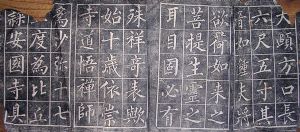 大頤方口長
六尺五寸其
音如鐘夫將
欲荷如來之
菩提生靈之
耳目固必有
殊祥奇表歟
始十歲依崇
寺道悟禪師
爲沙弥十七
度為比丘
隸安國寺具